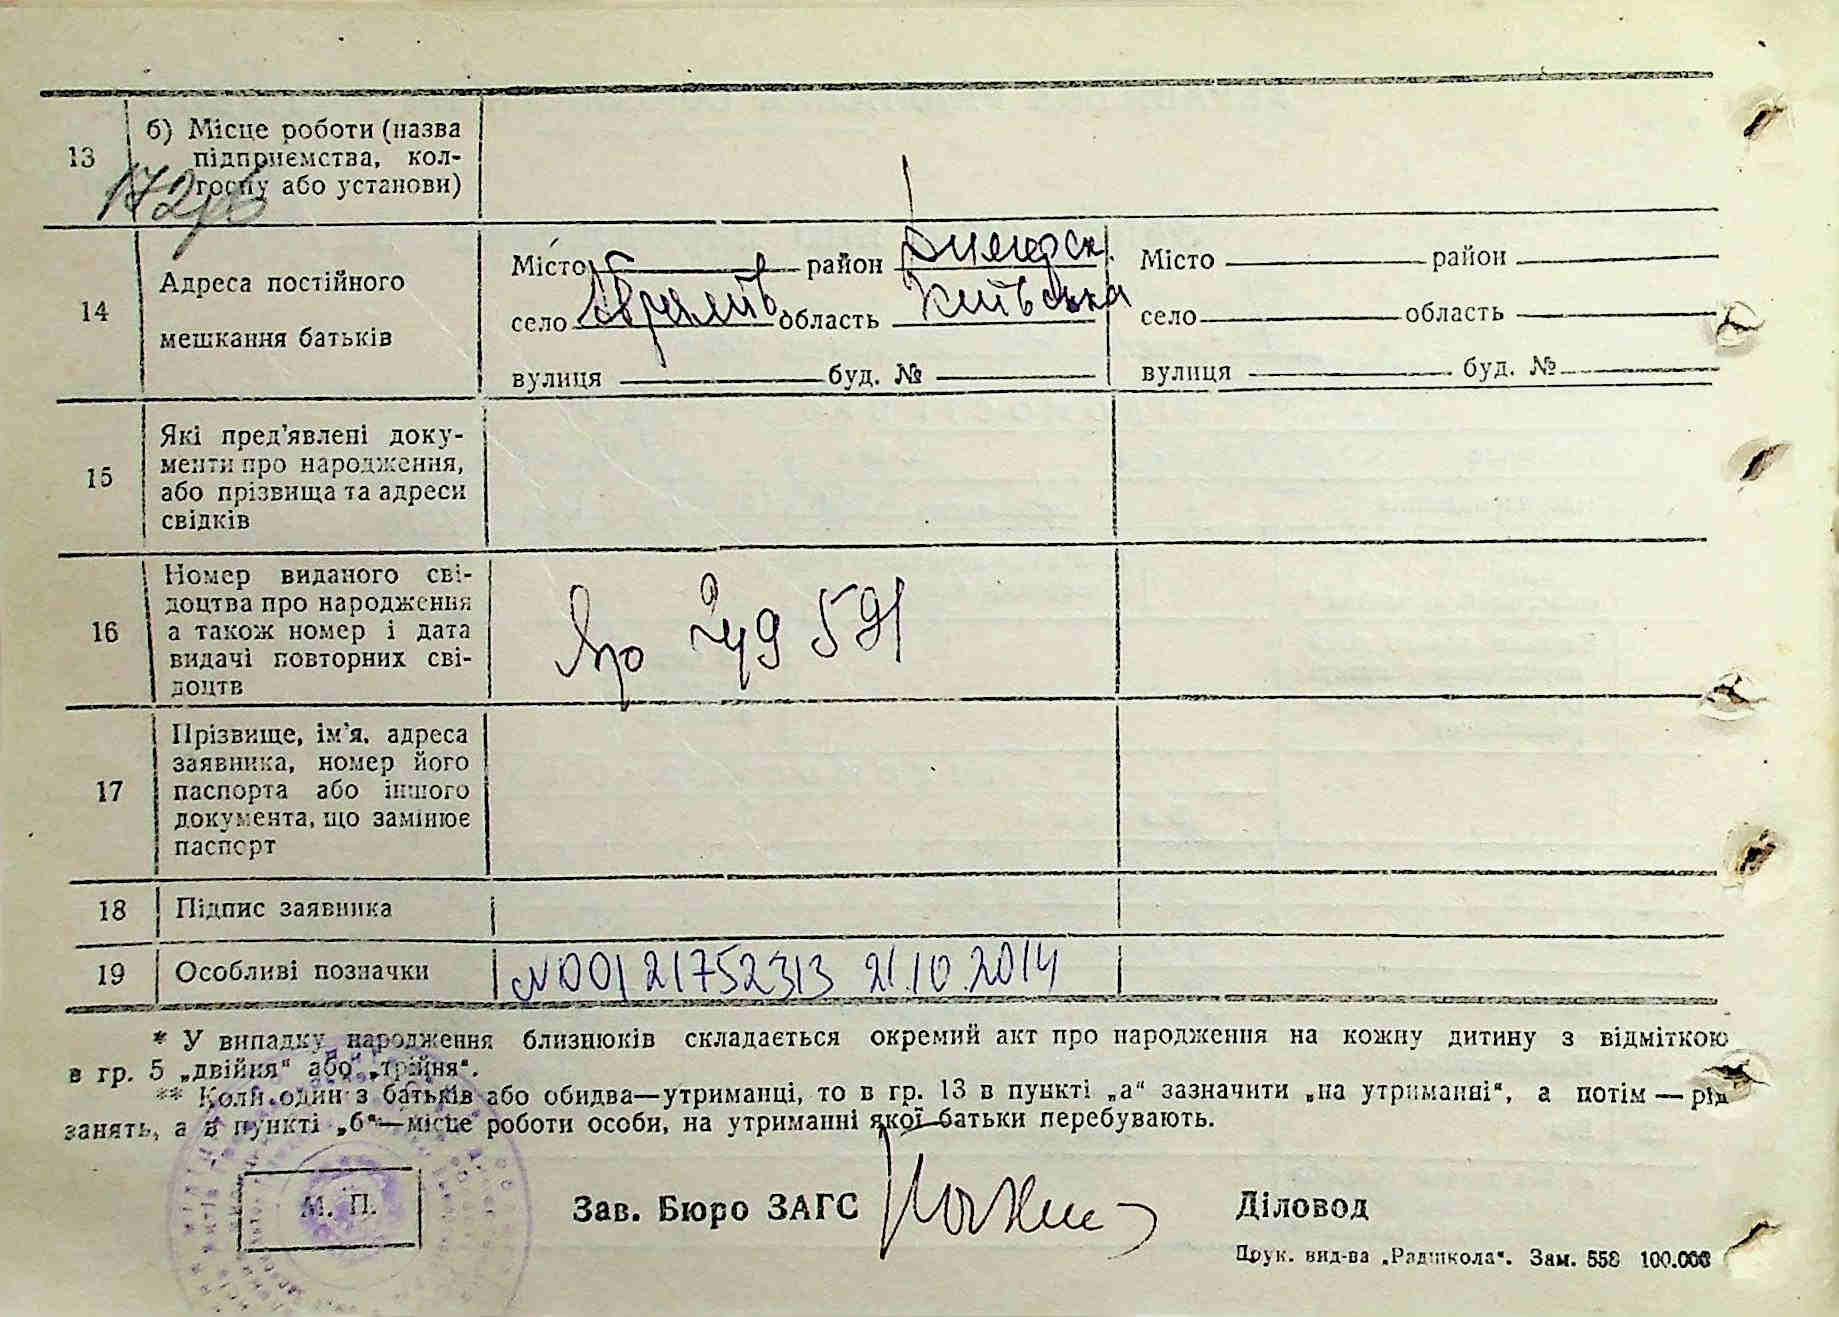 13 б) Місце роботи (назва
підприємства, кол-
госпу або установи)
172
14 Адреса постійного
мешкання батьків
Місто район Димерськ.
село область Київська
вулиця буд. №
Місто район
село область
вулиця буд. №
15 Які пред'явлені доку-
менти про народження,
або прізвища та адреси
свідків
16 Номер виданого сві-
доцтва про народження
а також номер і дата
видачі повторних сві-
доцтв
591
17 Прізвище, ім'я, адреса
заявника, номер його
паспорта або іншого
документа, що замінює
паспорт
18 Підпис заявника
19 Особливі позначки N 00121752313 21.10.2014
* У випадку народження близнюків складається окремий акт про народження на кожну дитину з відміткою
в гр. 5 „двійня“ або „трійня“.
** Коли один з батьків або обидва—утриманці, то в гр. 13 в пункті „а“ зазначити „на утриманні“, а потім — рід
занять, а в пункті „б“—місце роботи особи, на утриманні якої батьки перебувають.
М. П.
Зав. Бюро ЗАГС
Діловод
Друк. вид-ва „Радшкола“. Зам. 558 100.000